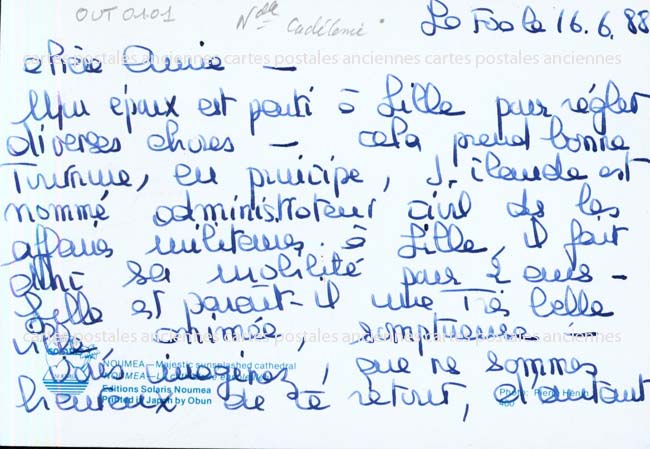 OUT 0101
Nlle Calédonie.
La Foa le 16.6.88
Chère Annie —
Mon époux est parti à Lille pour régler
diverses choses — cela prend bonne
tournure, en principe, J. Claude est
nommé administrateur civil de les
affaires militaires à Lille, il fait
ainsi sa mobilité pour 2 ans —
Lille est paraît-il une très belle
ville animée, somptueuse —
Vous imaginez, que ne sommes
heureux de ce retour, d'autant
NOUMEA – Majestic sunsplashed cathedral
NOUMEA
Editions Solaris Noumea
Printed in Japan by Obun
Photo: Pierre Hénin
400
cartes postales anciennes cartes postales anciennes cartes postales anciennes
cartes postales anciennes cartes postales anciennes cartes postales anciennes